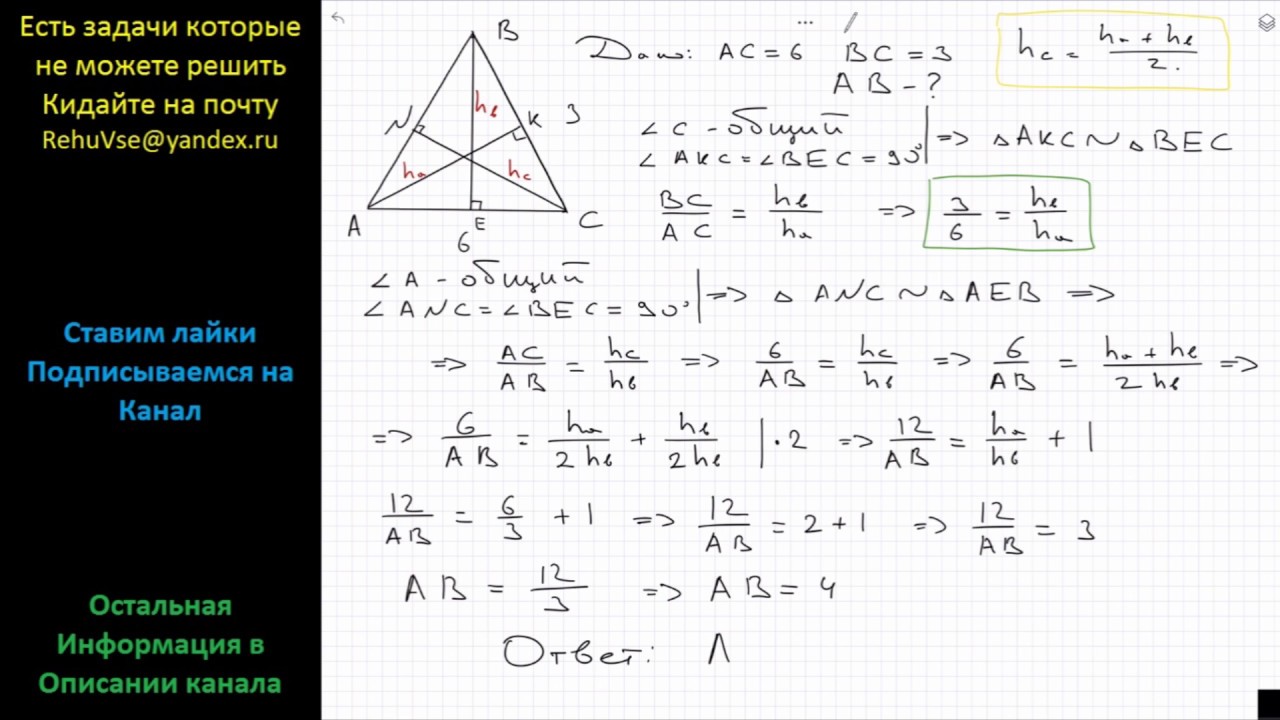 Есть задачи которые
не можете решить
Кидайте на почту
RehuVse@yandex.ru
Ставим лайки
Подписываемся на
Канал
Остальная
Информация в
Описании канала
B
N
K
3
hв
hа
hс
A
E
C
6
Дано: AC = 6 BC = 3
AB - ?
hс = (hа + hв)/2.
∠C - общий
∠AKC = ∠BEC = 90° | => △AKC ~ △BEC
BC/AC = hв/hа => 3/6 = hв/hа
∠A - общий
∠ANC = ∠BEC = 90° | => △ANC ~ △AEB =>
=> AC/AB = hс/hв => 6/AB = hс/hв => 6/AB = (hа + hв)/(2hв) =>
=> 6/AB = hа/(2hв) + hв/(2hв) | · 2 => 12/AB = hа/hв + 1
12/AB = 6/3 + 1 => 12/AB = 2 + 1 => 12/AB = 3
AB = 12/3 => AB = 4
Ответ: